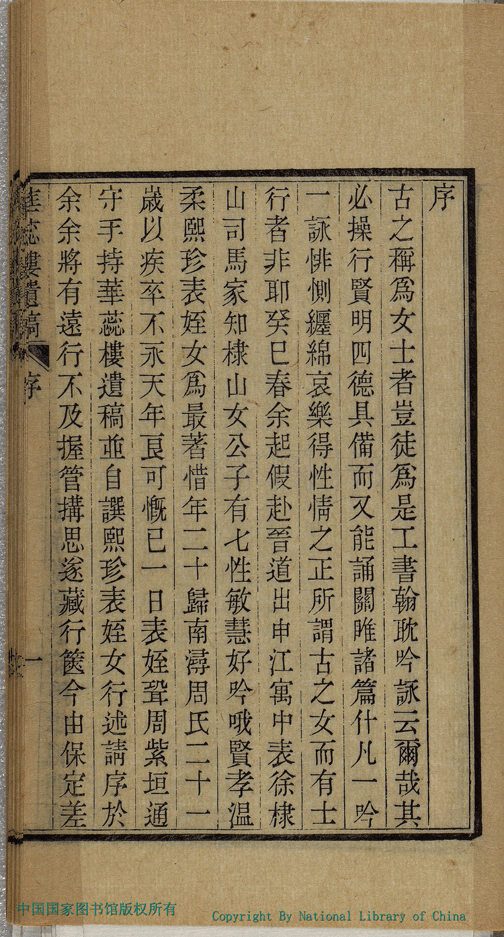 序
古之稱爲女士者豈徒爲是工書翰耽吟詠云爾哉其
必操行賢明四德具備而又能誦關雎諸篇什凡一吟
一詠悱惻纏綿哀樂得性情之正所謂古之女而有士
行者非耶癸巳春余起假赴晉道出申江寓中表徐棣
山司馬家知棣山女公子有七性敏慧好吟哦賢孝温
柔熙珍表姪女爲最著惜年二十歸南潯周氏二十一
歲以疾卒不永天年良可慨已一日表姪聟周紫垣通
守手持華蕊樓遺稿並自譔熙珍表姪女行述請序於
余余將有遠行不及握管搆思遂藏行篋今由保定差
華蕊樓遺稿 序 一
中国国家图书馆版权所有
Copyright By National Library of China